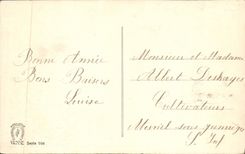 Bonne Année
Bons Baisers
Louise
Monsieur et Madame
Albert Deshayes
Cultivateurs
Mesnil sous Jumièges
S. Inf
Serie